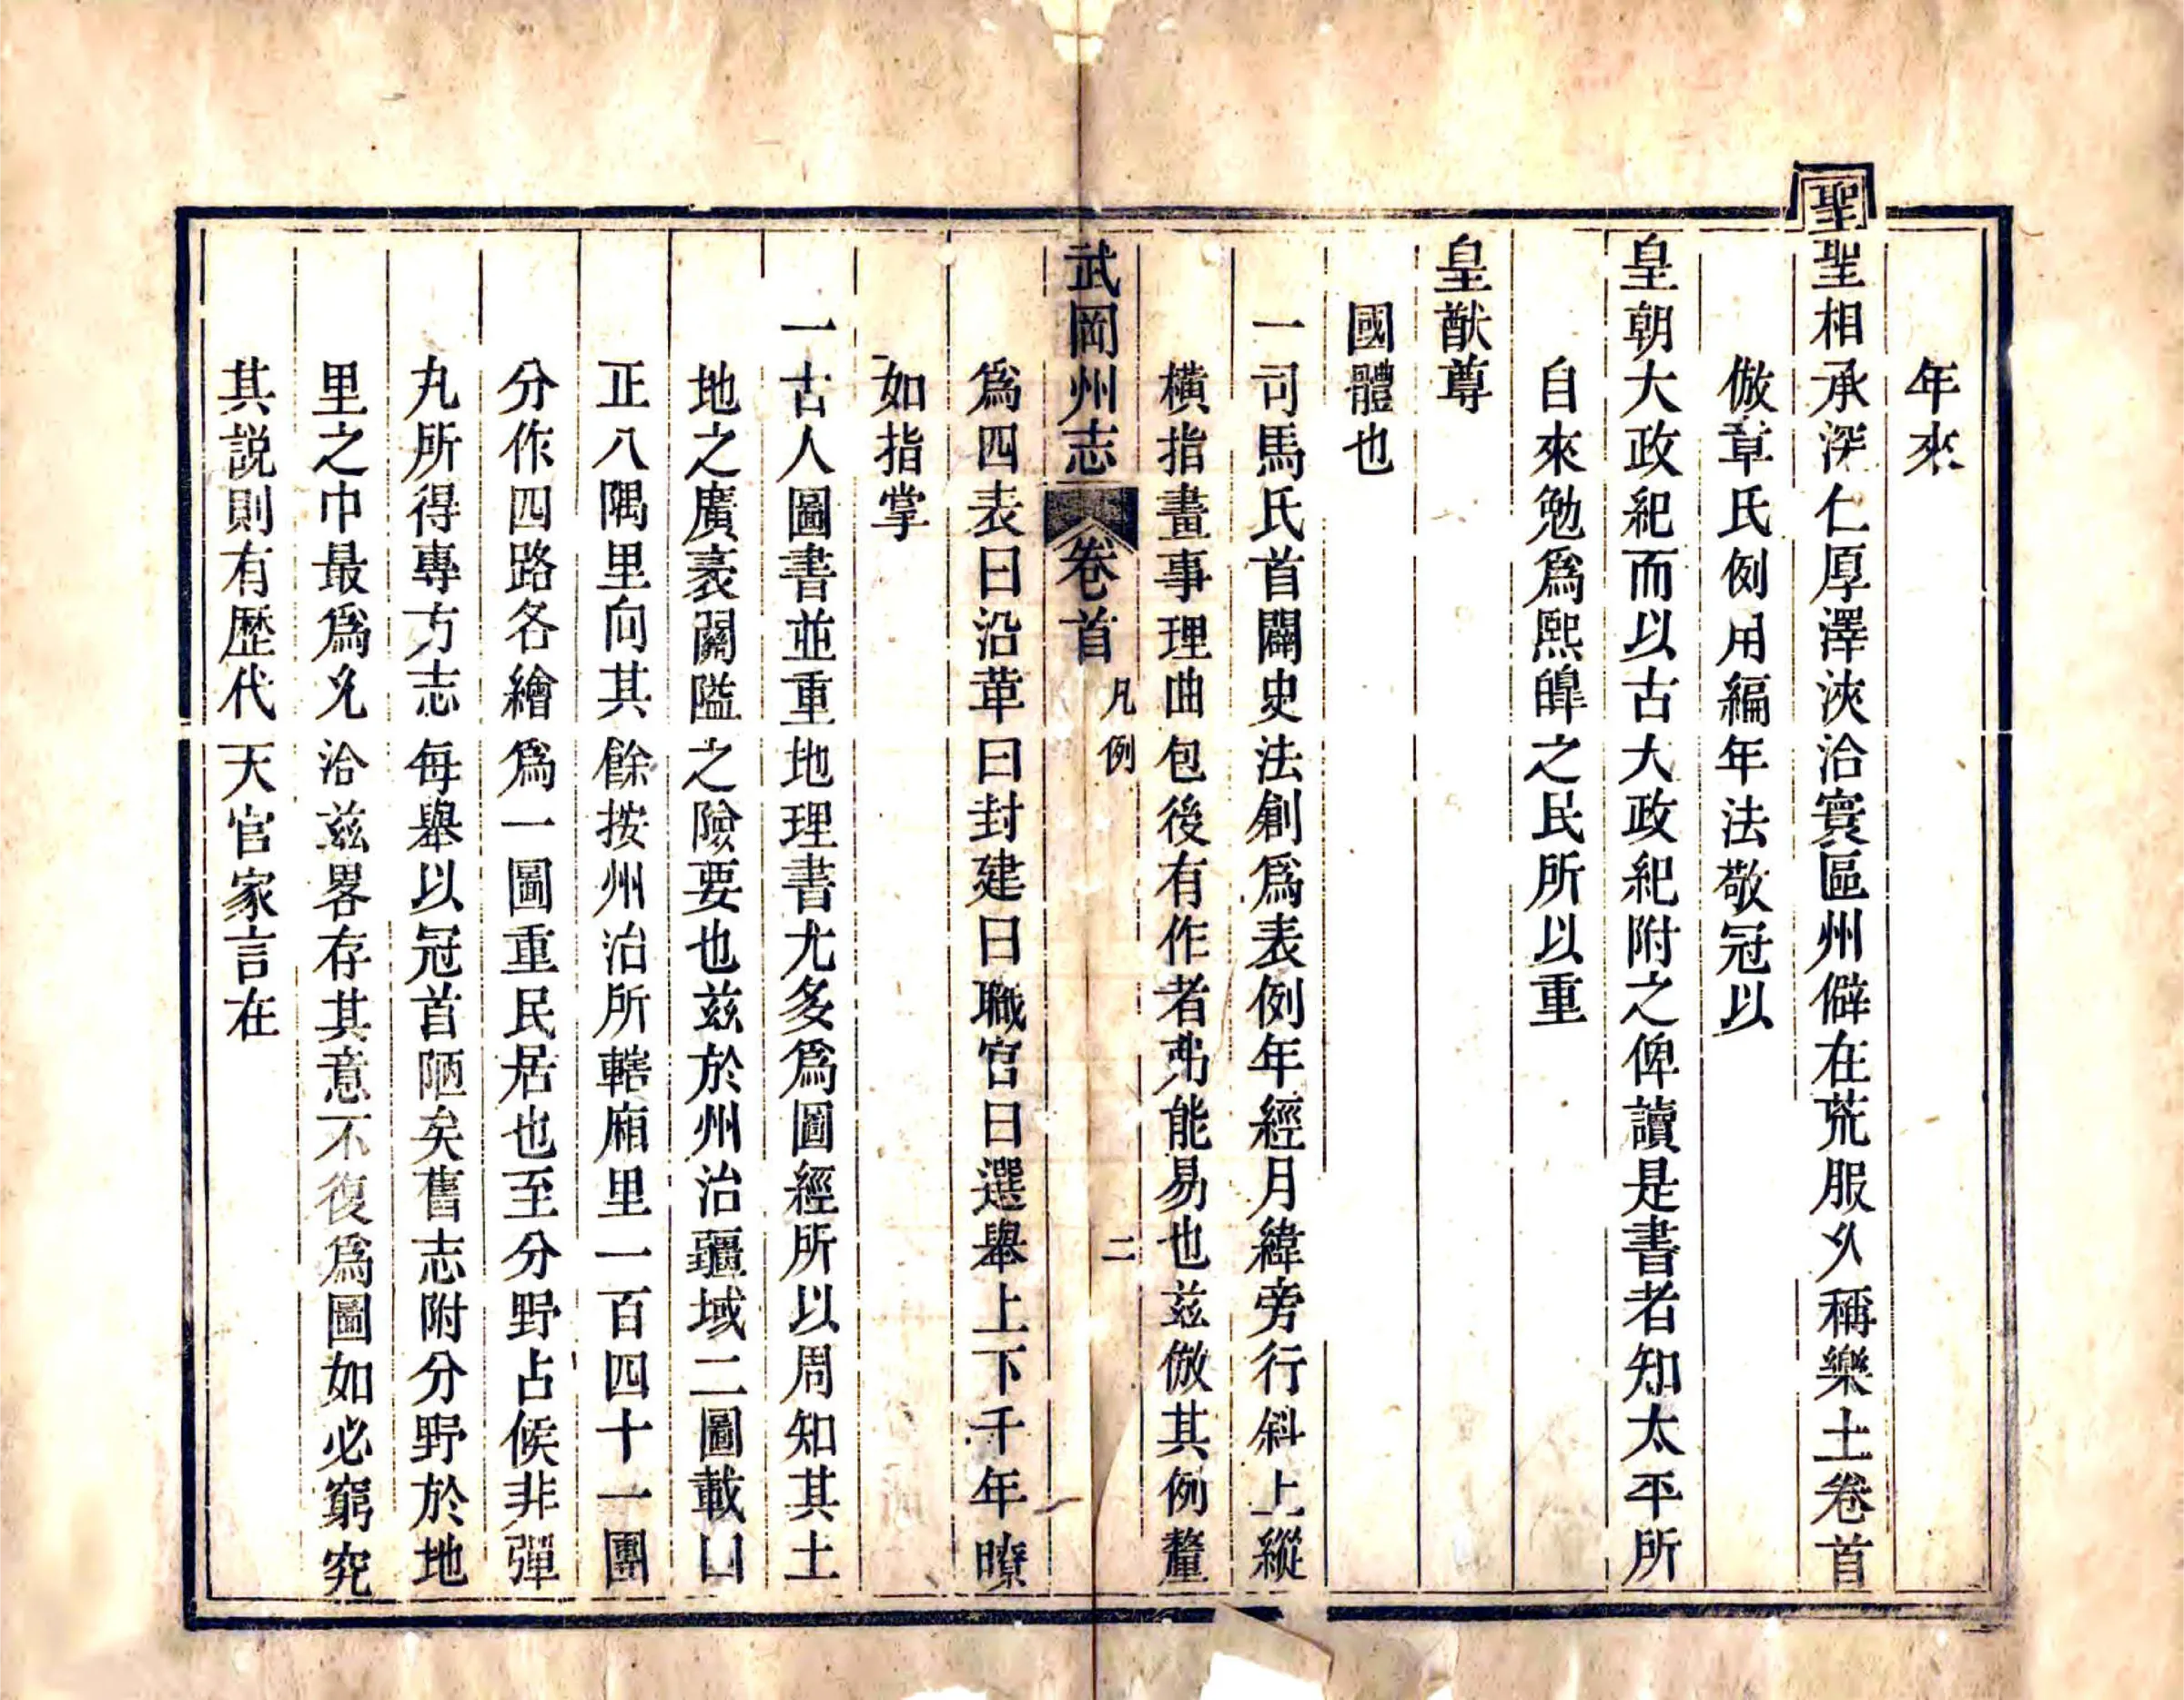 年來
聖聖相承深仁厚澤浹洽寰區州僻在荒服久稱樂土卷首
倣章氏例用編年法敬冠以
皇朝大政紀而以古大政紀附之俾讀是書者知太平所
自來勉爲熙皥之民所以重
皇猷尊
國體也
一司馬氏首闢史法創爲表例年經月緯旁行斜上縱
橫指畫事理曲包後有作者弗能易也兹倣其例釐
武岡州志 卷首 凡例 二
爲四表曰沿革曰封建曰職官曰選舉上下千年瞭
如指掌
一古人圖書並重地理書尤多爲圖經所以周知其土
地之廣袤關隘之險要也兹於州治疆域二圖載
正八隅里向其餘按州治所轄廂里一百四十一團
分作四路各繪爲一圖重民居也至分野占候非彈
丸所得專方志每舉以冠首陋矣舊志附分野於地
里之中最爲允洽兹畧存其意不復爲圖如必窮究
其説則有歷代天官家言在